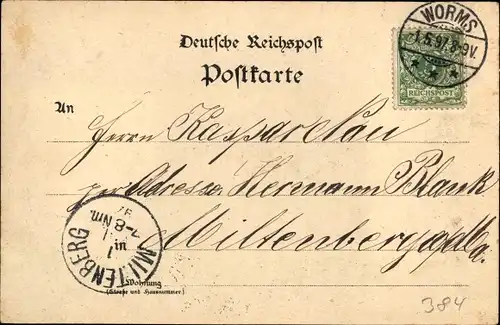 WORMS
1.5.97. 8-9V.
Deutsche Reichspost
Postkarte
REICHSPOST
An
Herrn Kaspar Nau
per Adresse Hermann Blank
in Miltenberg a/M.
MILTENBERG
7-8 Nm.
Wohnung
(Straße und Hausnummer.)
384